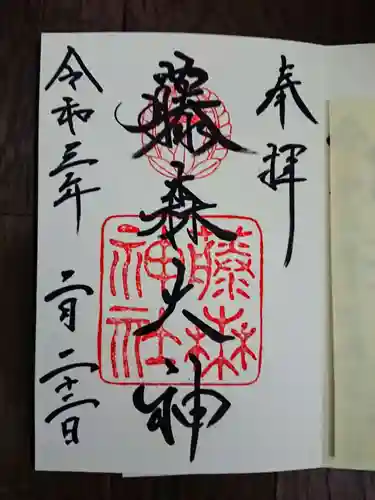 奉拝
藤森大神
藤森神社
令和三年
二月二十二日